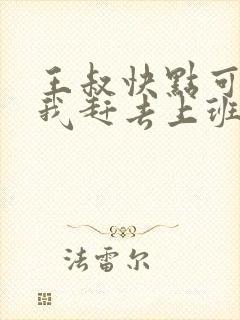 王叔快點可
我赶去上班
法雷尔